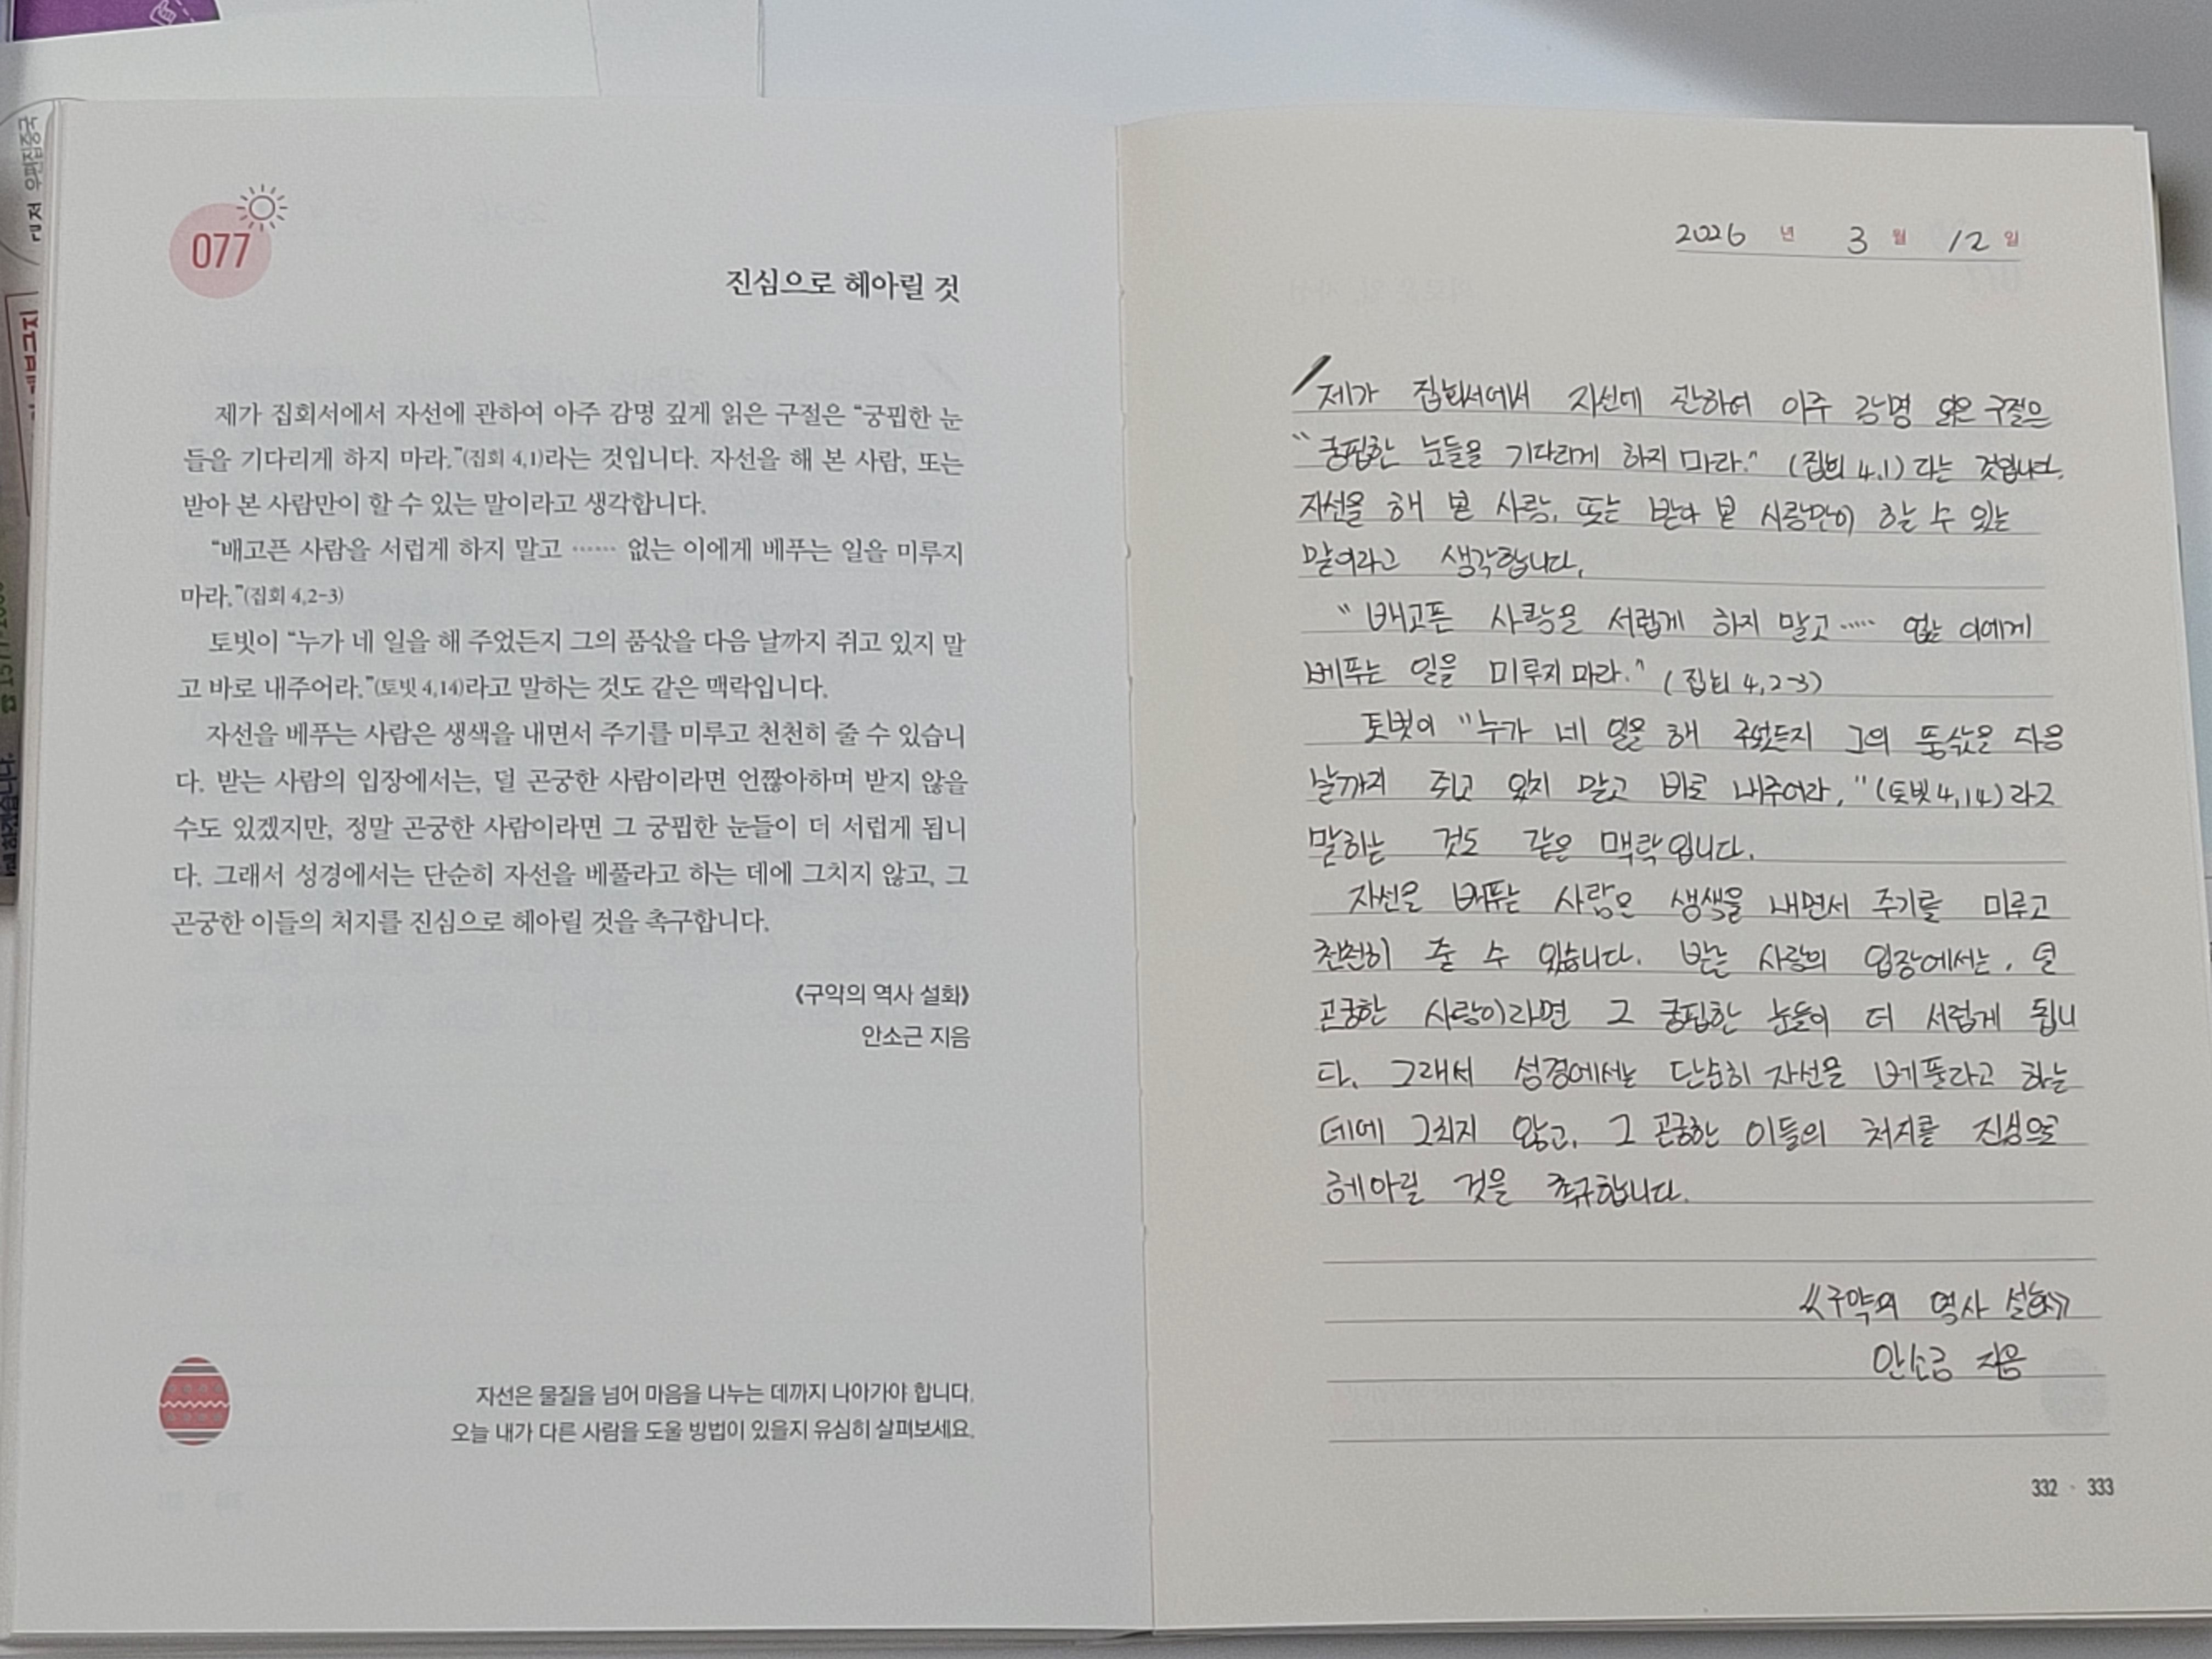 077
진심으로 헤아릴 것
제가 집회서에서 자선에 관하여 아주 감명 깊게 읽은 구절은 “궁핍한 눈
들을 기다리게 하지 마라.”(집회 4,1)라는 것입니다. 자선을 해 본 사람, 또는
받아 본 사람만이 할 수 있는 말이라고 생각합니다.
“배고픈 사람을 서럽게 하지 말고 …… 없는 이에게 베푸는 일을 미루지
마라.”(집회 4,2-3)
토빗이 “누가 네 일을 해 주었든지 그의 품삯을 다음 날까지 쥐고 있지 말
고 바로 내주어라.”(토빗 4,14)라고 말하는 것도 같은 맥락입니다.
자선을 베푸는 사람은 생색을 내면서 주기를 미루고 천천히 줄 수 있습니
다. 받는 사람의 입장에서는, 덜 곤궁한 사람이라면 언짢아하며 받지 않을
수도 있겠지만, 정말 곤궁한 사람이라면 그 궁핍한 눈들이 더 서럽게 됩니
다. 그래서 성경에서는 단순히 자선을 베풀라고 하는 데에 그치지 않고, 그
곤궁한 이들의 처지를 진심으로 헤아릴 것을 촉구합니다.
《구약의 역사 설화》
안소근 지음
자선은 물질을 넘어 마음을 나누는 데까지 나아가야 합니다.
오늘 내가 다른 사람을 도울 방법이 있을지 유심히 살펴보세요.
2026 년 3 월 12 일
제가 집회서에서 자선에 관하여 아주 감명 읽은 구절은
“궁핍한 눈들을 기다리게 하지 마라.” (집회 4.1) 라는 것입니다.
자선을 해 본 사람, 또는 받아 본 사람만이 하는 수 있는
말이라고 생각합니다.
“배고픈 사람을 서럽게 하지 말고 …… 없는 이에게
베푸는 일을 미루지 마라.” (집회 4,2-3)
토빗이 “누가 네 일을 해 주었든지 그의 품삯을 다음
날까지 쥐고 있지 말고 바로 내주어라.” (토빗 4,14) 라고
말하는 것도 같은 맥락입니다.
자선을 베푸는 사람은 생색을 내면서 주기를 미루고
천천히 줄 수 있습니다. 받는 사람의 입장에서는, 덜
곤궁한 사람이라면 그 궁핍한 눈들이 더 서럽게 됩니
다. 그래서 성경에서는 단순히 자선을 베풀라고 하는
데에 그치지 않고, 그 곤궁한 이들의 처지를 진심으로
헤아릴 것을 촉구합니다.
《구약의 역사 설화》
안소근 지음
332 · 333